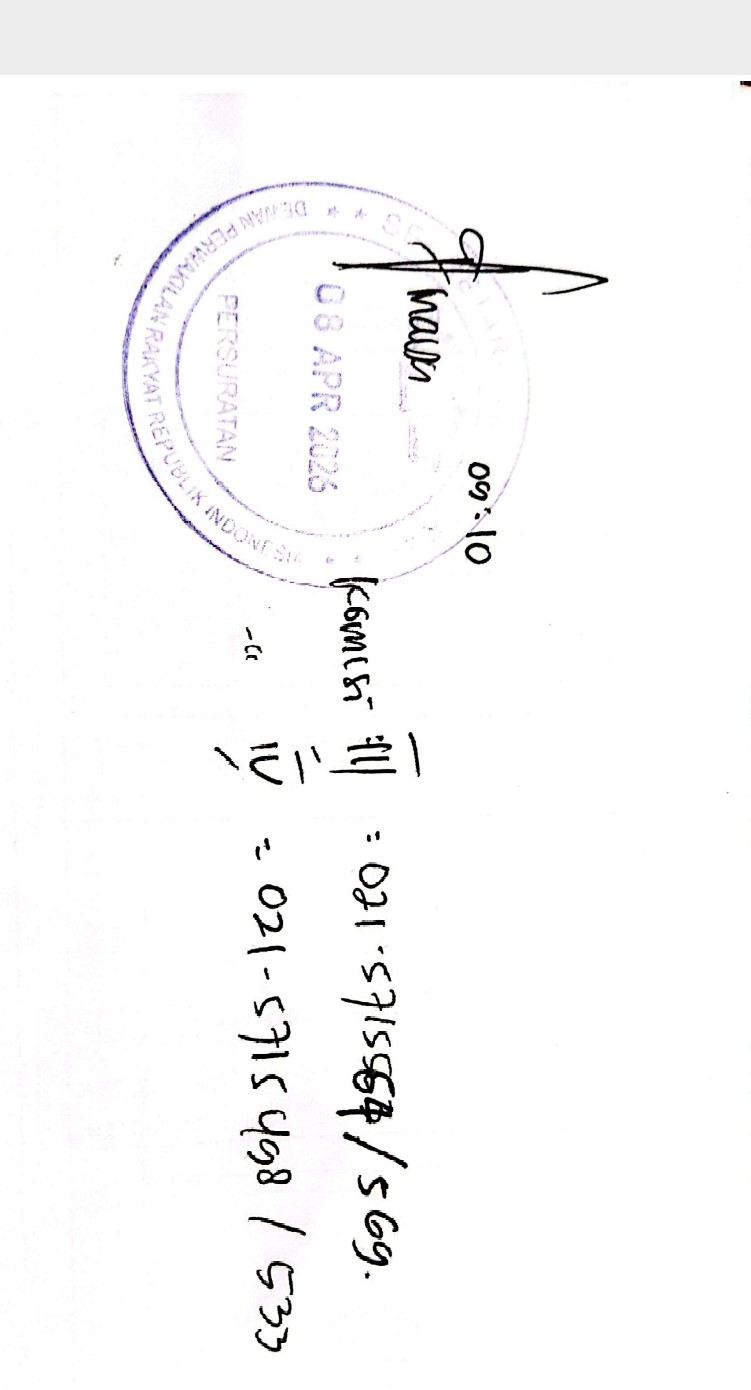 DEWAN PERWAKILAN RAKYAT REPUBLIK INDONESIA
09.10
08 APR 2026
PERSURATAN
Komisi III = 021. 5715564 / 569.
-" IV = 021. 5715498 / 533